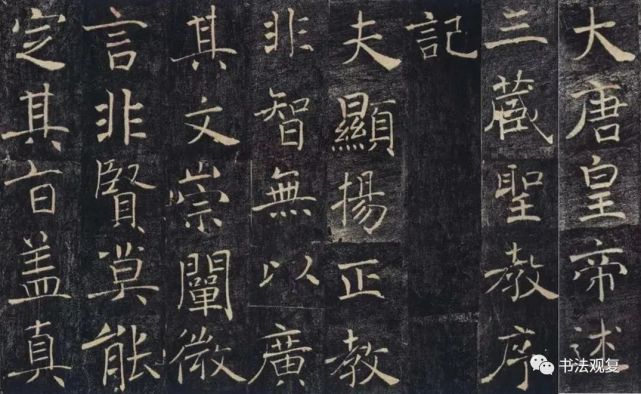 大唐皇帝述
三藏聖教序
記
夫顯揚正教
非智無以廣
其文崇闡微
言非賢莫能
定其旨盖真
书法观复